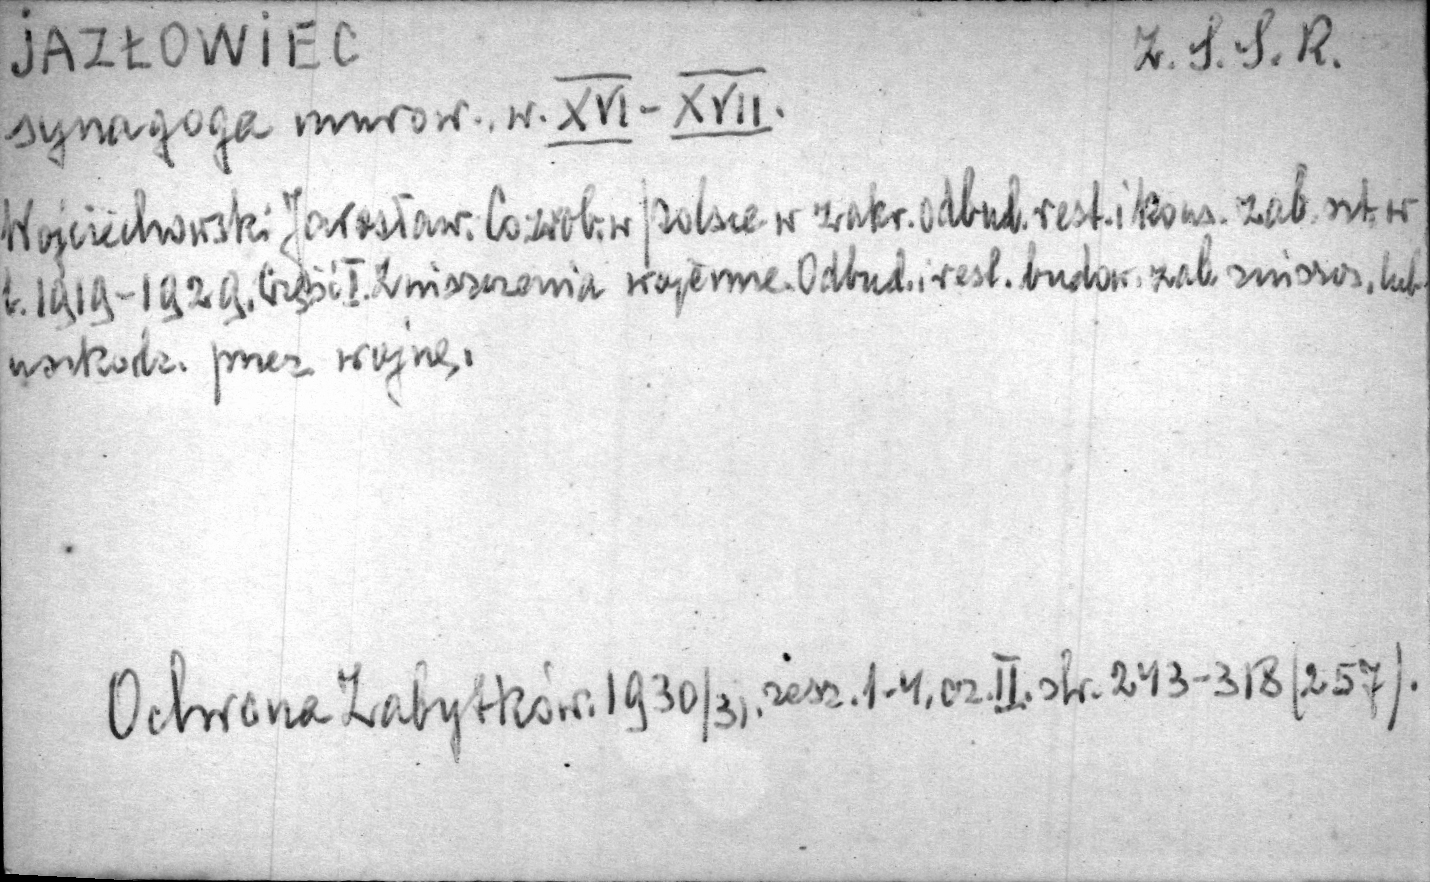 JAZŁOWIEC Z.S.S.R.
synagoga murow. w. XVI - XVII.
Wojciechowski Jarosław. Co zrob. w Polsce w zakr. odbud. rest. i kons. zab. szt. w
l. 1919-1929. Część I. Zniszczenia wojenne. Odbud. i rest. budow. zab. zniszcz. lub
uszkodz. przez wojnę.
Ochrona Zabytków. 1930/31. zesz. 1-4, cz. II. str. 243-318 (257).